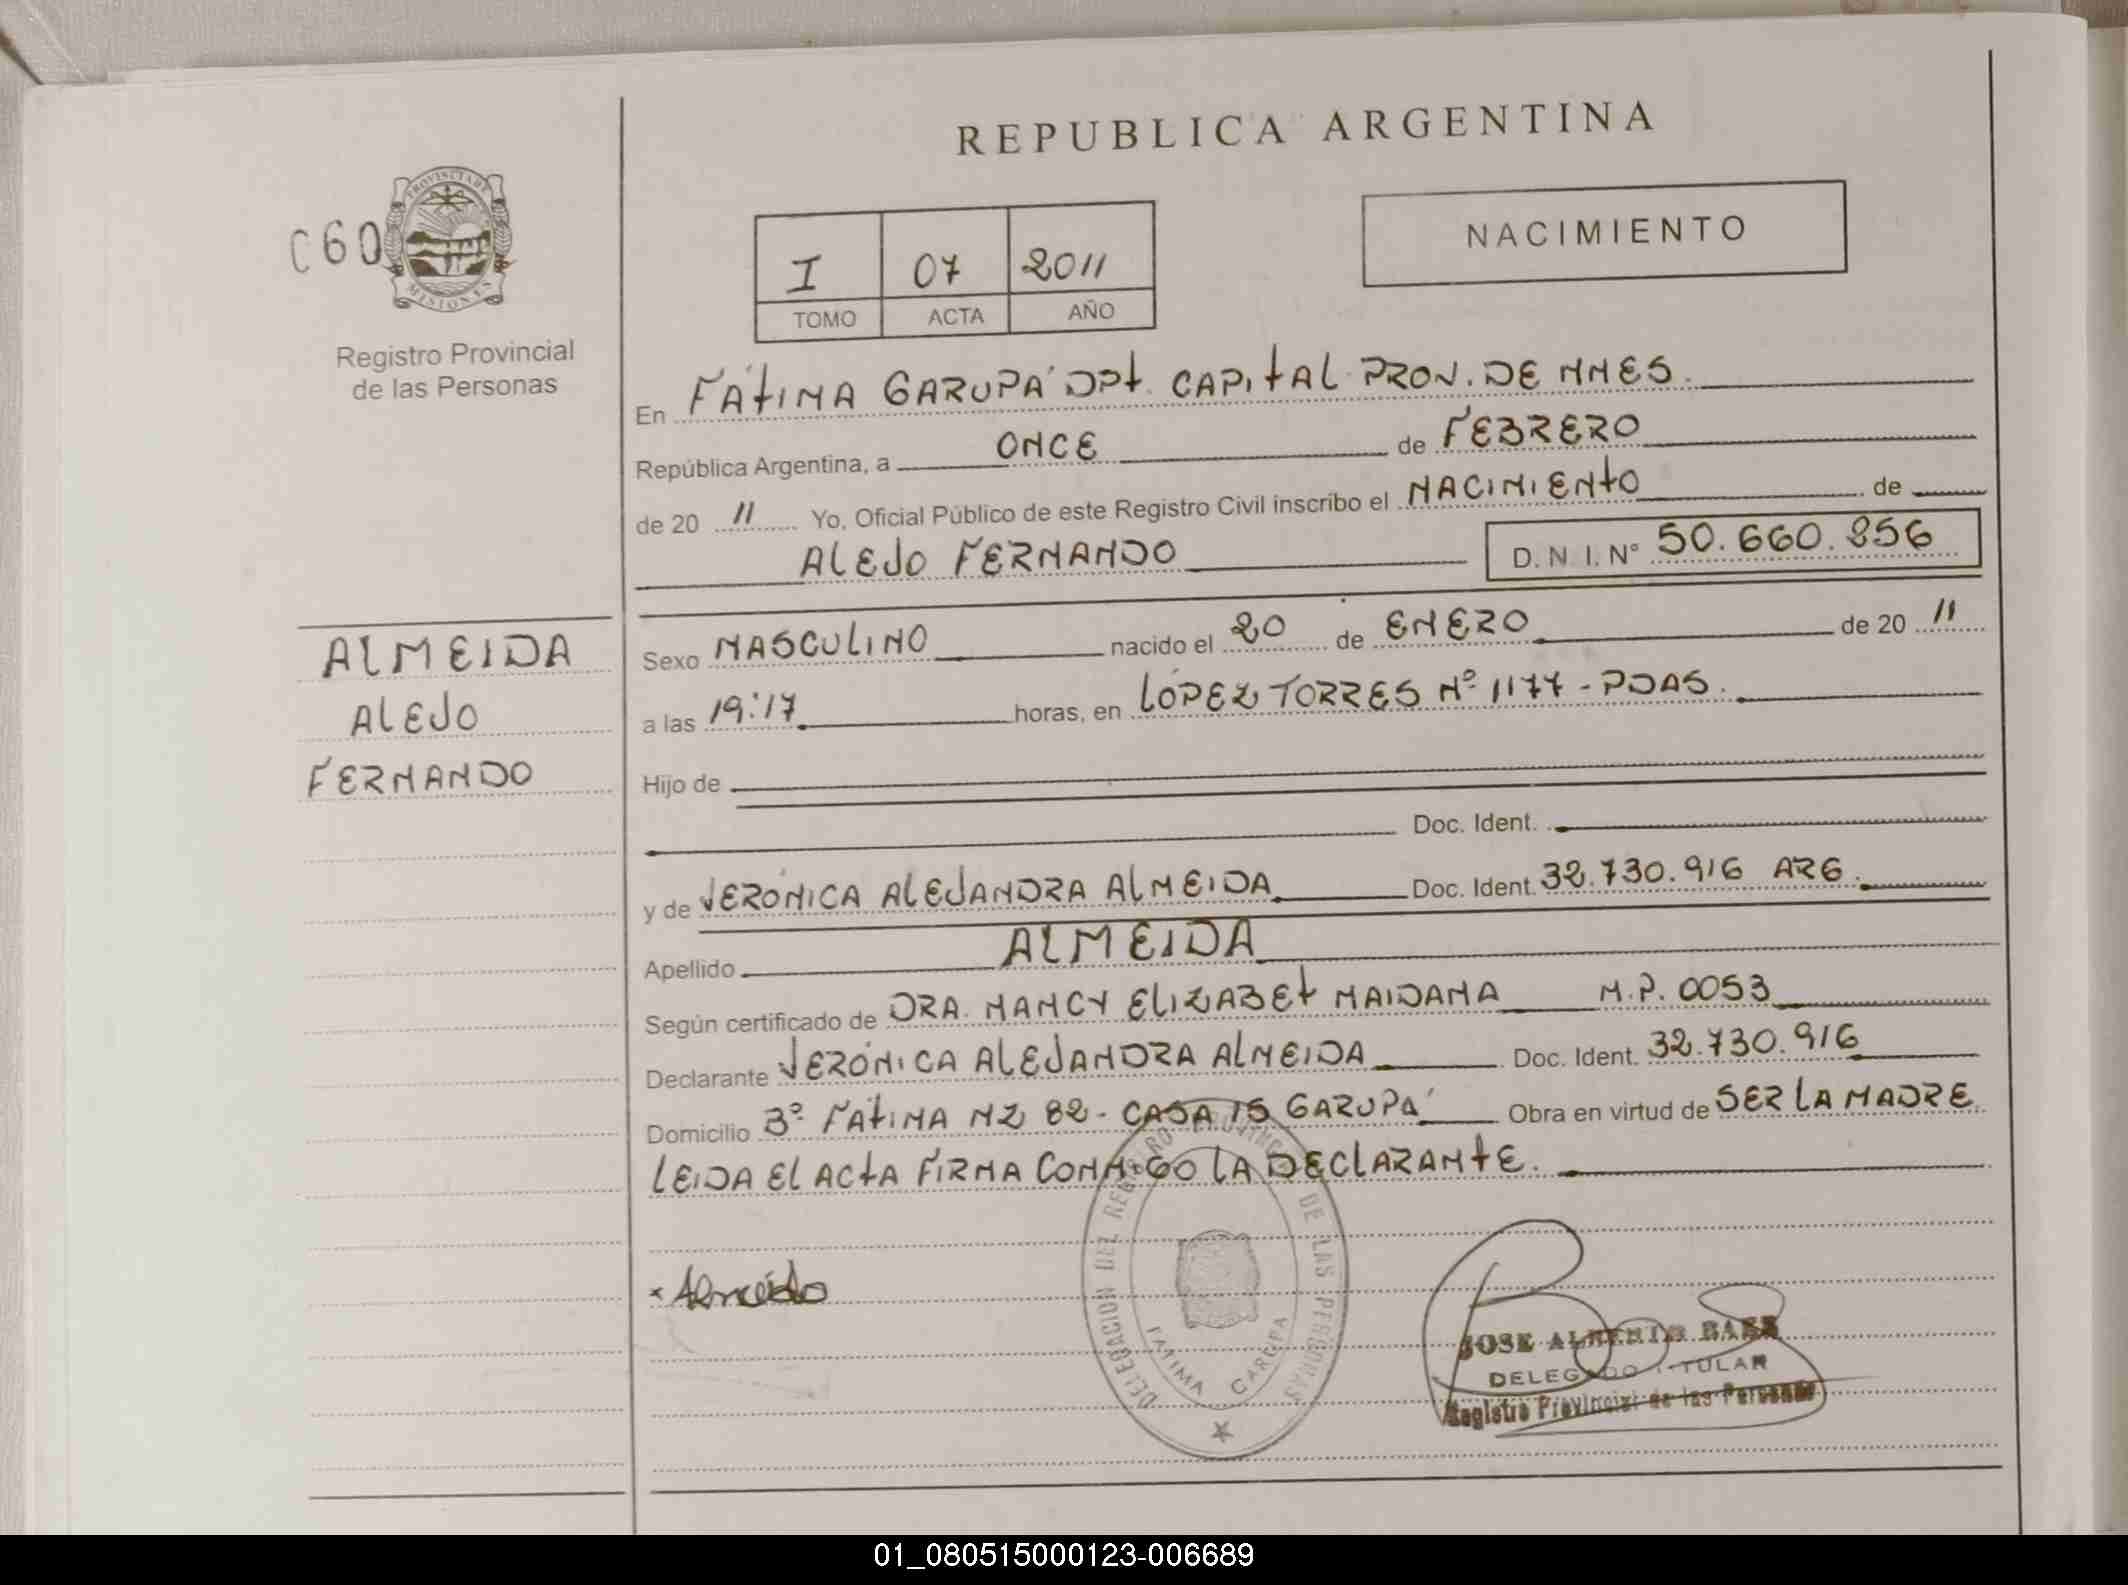 REPUBLICA ARGENTINA
C60
PROVINCIA DE
MISIONES
Registro Provincial
de las Personas
I 07 2011
TOMO ACTA AÑO
NACIMIENTO
En FÁTIMA GARUPÁ DPT. CAPITAL PROV. DE MNES.
República Argentina, a ONCE de FEBRERO
de 20 11 Yo, Oficial Público de este Registro Civil inscribo el NACIMIENTO de
ALEJO FERNANDO D. N. I. N° 50.660.856
ALMEIDA
ALEJO
FERNANDO
Sexo MASCULINO nacido el 20 de ENERO de 20 11
a las 19:17 horas, en LÓPEZ TORRES Nº 1177 - PDAS.
Hijo de
Doc. Ident.
y de VERÓNICA ALEJANDRA ALMEIDA Doc. Ident. 32.730.916 ARG.
Apellido ALMEIDA
Según certificado de DRA. NANCY ELIZABET MAIDANA M.P. 0053
Declarante VERÓNICA ALEJANDRA ALMEIDA Doc. Ident. 32.730.916
Domicilio Bº FÁTIMA MZ 82 - CASA 15 GARUPÁ Obra en virtud de SER LA MADRE
LEIDA EL ACTA FIRMA CONMIGO LA DECLARANTE.
DELEGACION DEL REGISTRO PROVINCIAL DE LAS PERSONAS
FATIMA GARUPA
x Almeida
JOSE ALBERTO BAEZ
DELEGADO TITULAR
Registro Provincial de las Personas
01_080515000123-006689